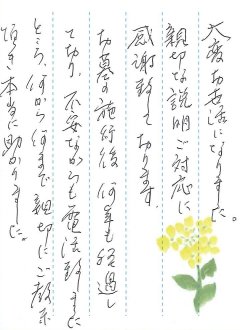 大変お世話になりました。
親切な説明ご対応に
感謝致して おります。
お墓の施行後 何年も経過し
て おり、不安ながらも電話致した
ところ、何から何まで 親切にご教示
頂き 本当に助かりました。